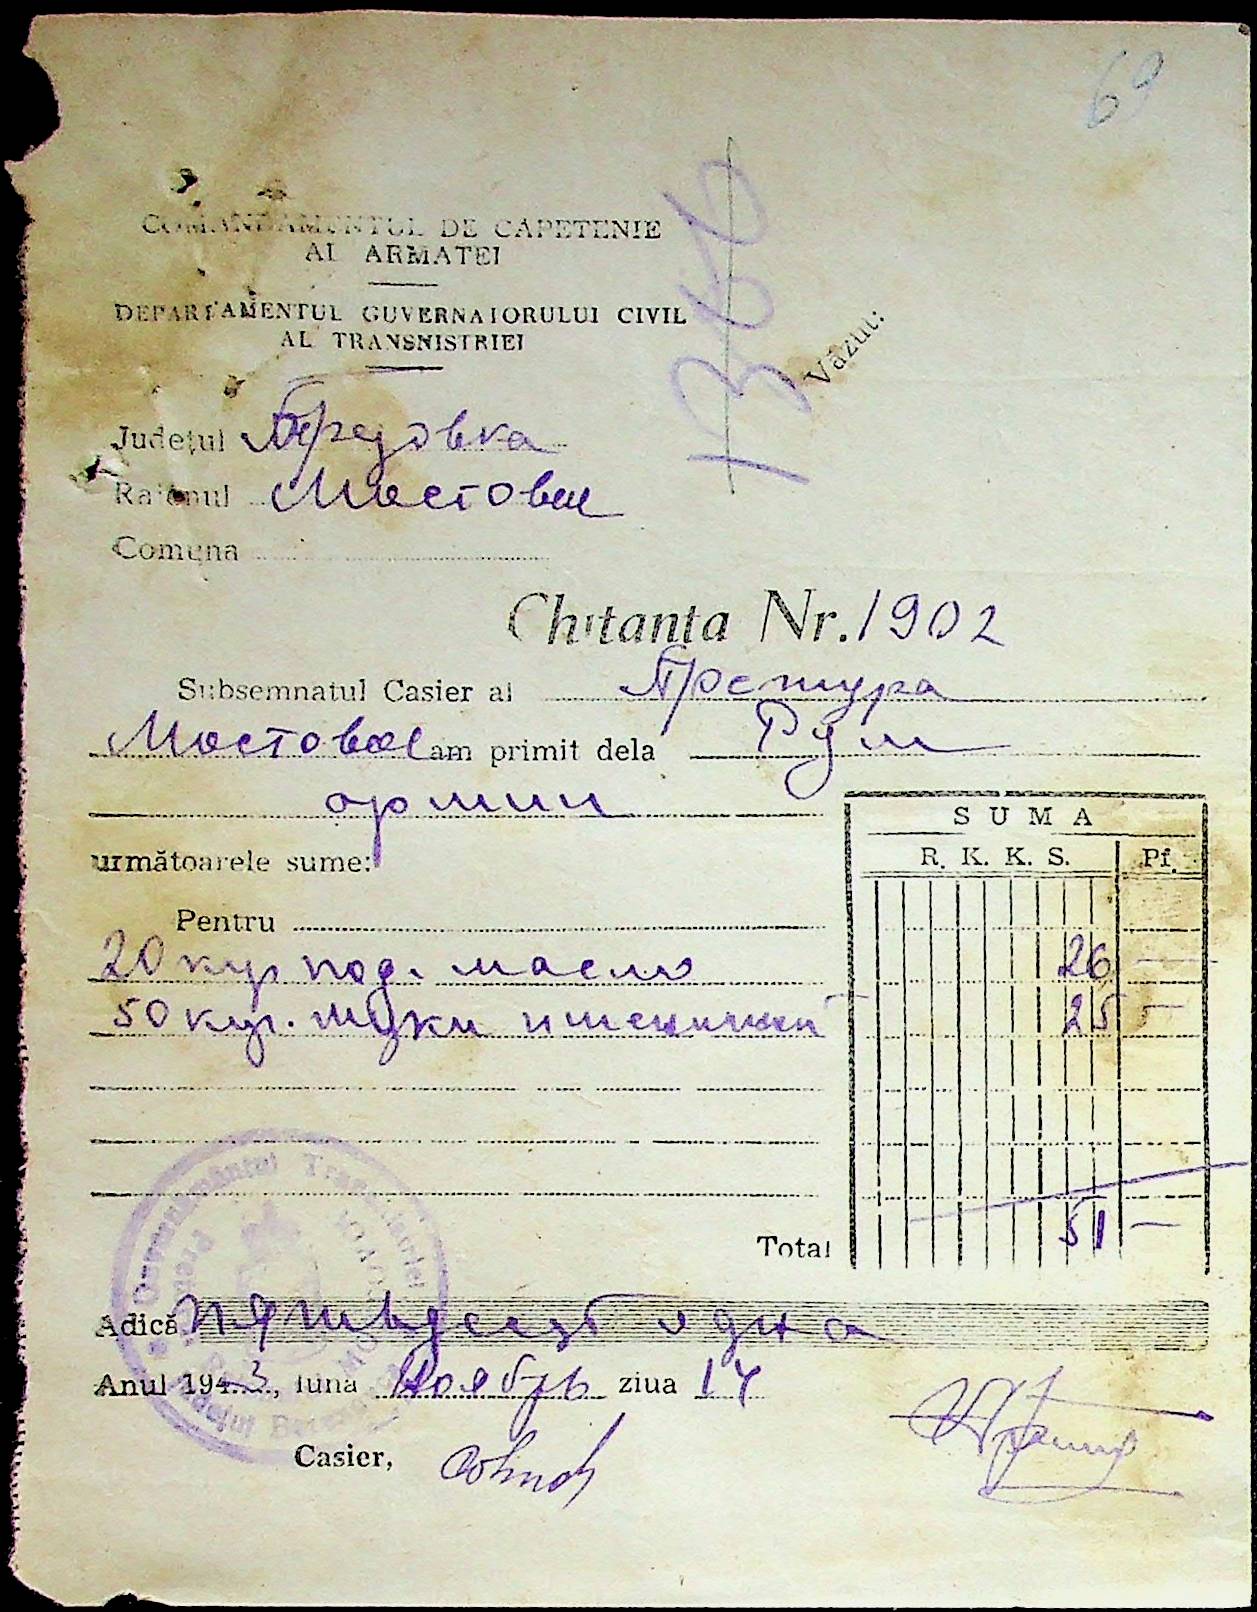 69
1366
COMANDAMENTUL DE CAPETENIE
AL ARMATEI
DEPARTAMENTUL GUVERNATORULUI CIVIL
AL TRANSNISTRIEI
Văzut:
Județul Березовка
Raionul Мостовое
Comuna
Chitanta Nr. 1902
Subsemnatul Casier al Претура
Мостовое am primit dela Рум
армии
SUMA
următoarele sume:
R. K. K. S. Pf.
Pentru
20 кгр под. масло 26 —
50 кгр. муки пшенични 25 —
Total 51 —
Adică пятьдесят одна
Anul 1943, luna Ноябрь ziua 14
Casier,
Guvernământul Transnistriei
Județul